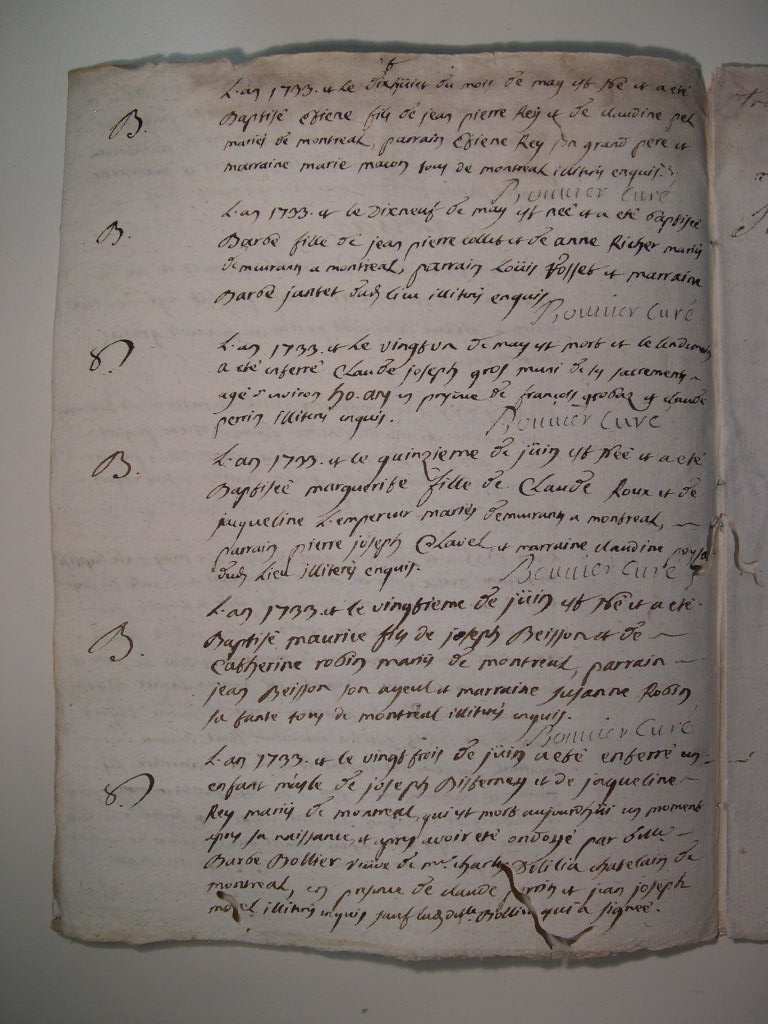 B.
L.an 1733. et le dixhuict du mois de may est née et a eté
Baptisé Etiene fils de jean pierre Rey et de claudine pel
mariés de montreal, parrain Etiene Rey son grand pere et
marraine marie macon tous de montreal illiterés enquis.
Bonnier Curé
B.
L.an 1733. et le Dixneuf de may est née et a eté baptisée
Barbe fille de jean pierre collet et de anne Richer mariés
demeurans a montreal, parrain Loüis et marraine
Barbe jantet dud. lieu illiterés enquis
Bonnier Curé
S.
L.an 1733. et le vingt un de may est mort et le lendemain
a eté enterré Claude joseph gros muni de ts sacrements
agé d'environ ans en prnce de françois grobaz et claude
perrin illiterés enquis.
Bonnier Curé
B.
L.an 1733. et le quinzieme de jüin est née et a eté
Baptisée marguerite fille de Claude Roux et de
jaqueline L.empereur mariés demeurans a montreal,
parrain pierre joseph Clavel, et marraine claudine
dud. Lieu illiterés enquis.
Bonnier Curé
B.
L.an 1733. et le vingtieme de jüin est née et a eté
Baptisé maurice fils de joseph Beisson et de
Catherine robin mariés de montreal, parrain
jean Beisson son ayeul et marraine susanne Robin
sa tante tous de montreal illiterés enquis.
Bonnier Curé
S.
L.an 1733. et le vingt trois de jüin a eté enterré un
enfant mâsle de joseph et de jaqueline
Rey mariés de montreal, qui est mort aujourdhui un moment
apres sa naissance, et apres avoir eté ondoyé par dlle
Barbe Bollier veuve de mr. charles Delilia chatelain de
montreal, en presence de claude perrin et jean joseph
morel illiterés enquis sauf lad. dlle Bollier qui a signée.